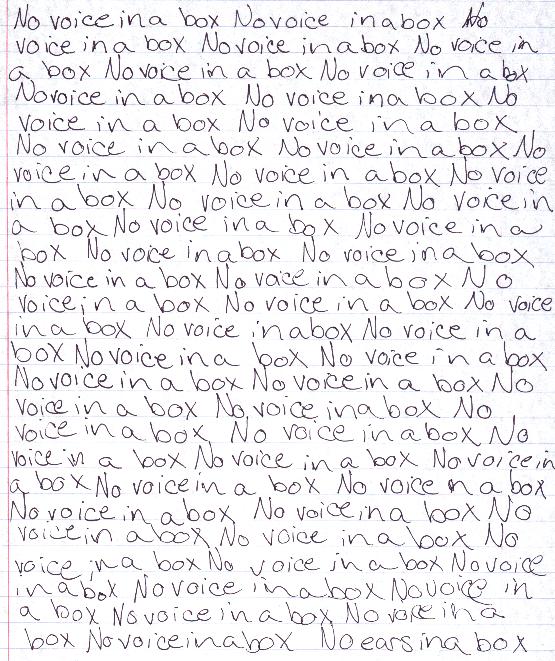 No voice in a box No voice in a box No
voice in a box No voice in a box No voice in
a box No voice in a box No voice in a box
No voice in a box No voice in a box No
voice in a box No voice in a box
No voice in a box No voice in a box No
voice in a box No voice in a box No voice
in a box No voice in a box No voice in
a box No voice in a box No voice in a
box No voice in a box No voice in a box
No voice in a box No voice in a box No
voice in a box No voice in a box No voice
in a box No voice in a box No voice in a
box No voice in a box No voice in a box
No voice in a box No voice in a box No
voice in a box No voice in a box No
voice in a box No voice in a box No
voice in a box No voice in a box No voice in
a box No voice in a box No voice in a box
No voice in a box No voice in a box No
voice in a box No voice in a box No
voice in a box No voice in a box No voice
in a box No voice in a box No voice in
a box No voice in a box No voice in a
box No voice in a box No ears in a box